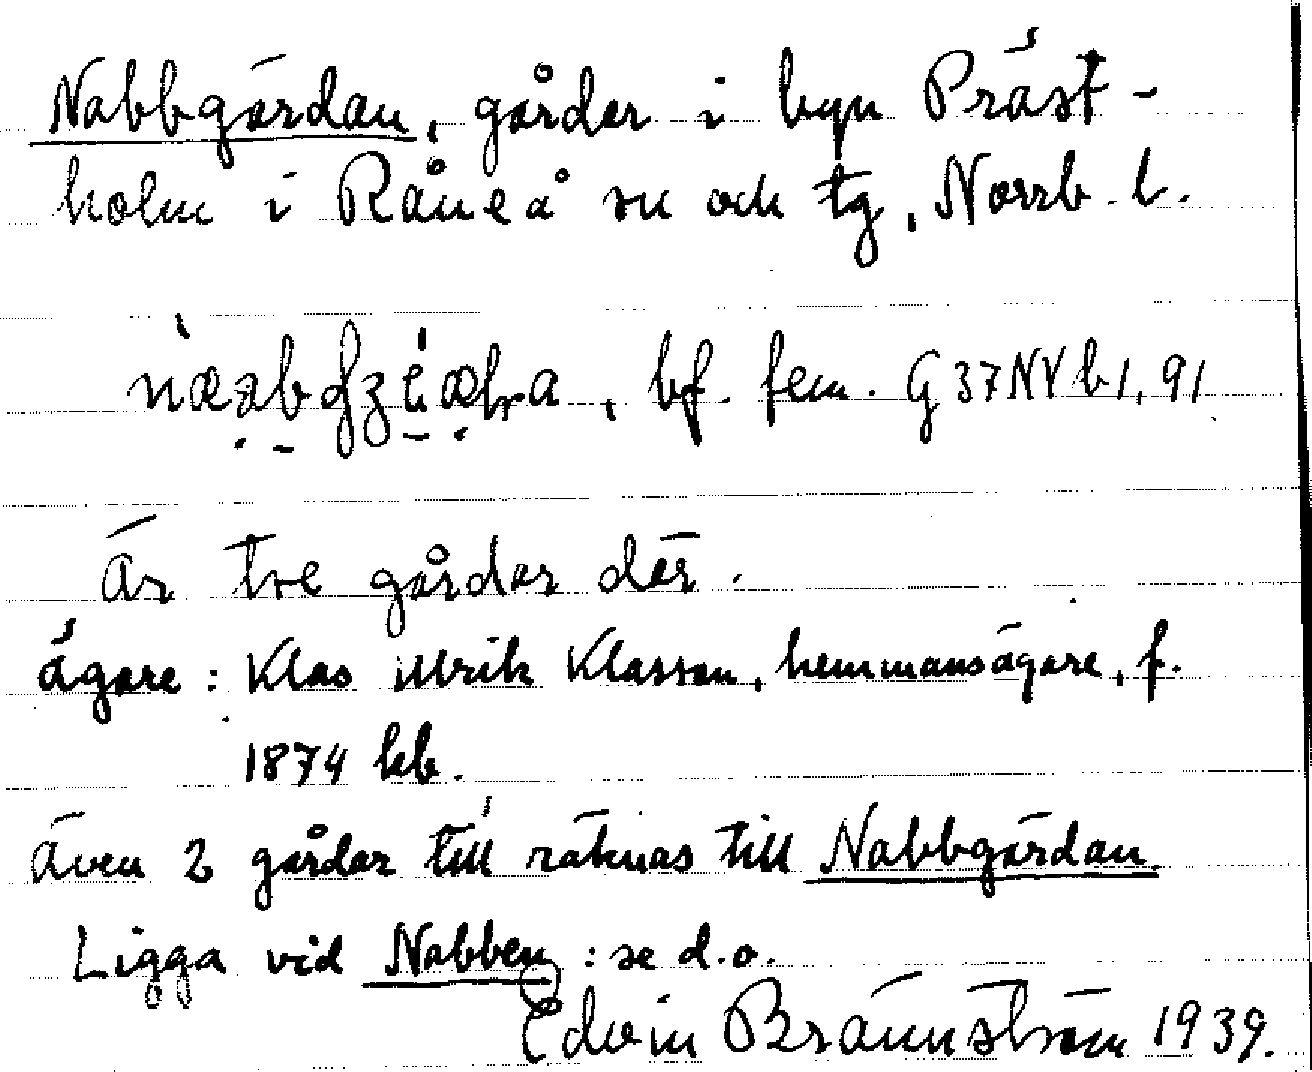 Nabbgärdan, gårdar i byn Präst-
holm i Råneå sn och tg, Norrb. l.
bf. fem. G37NVb1, 91
Är tre gårdar där.
ägare: Klas Ulrik Klasson, hemmansägare, f.
1874 kb.
Även 2 gårdar till räknas till Nabbgärdan.
Ligga vid Nabben: se d.o.
Edvin Brännström 1939.